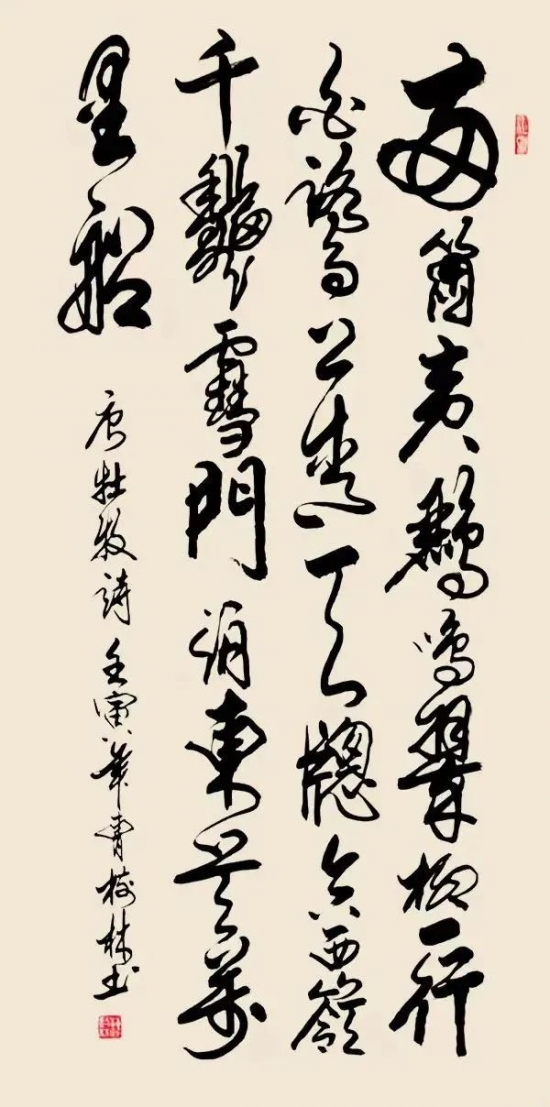 兩箇黃鸝鳴翠柳一行
白鷺上青天牕含西嶺
千龝雪門泊東吳萬
里船
唐杜牧詩壬寅年樹林書